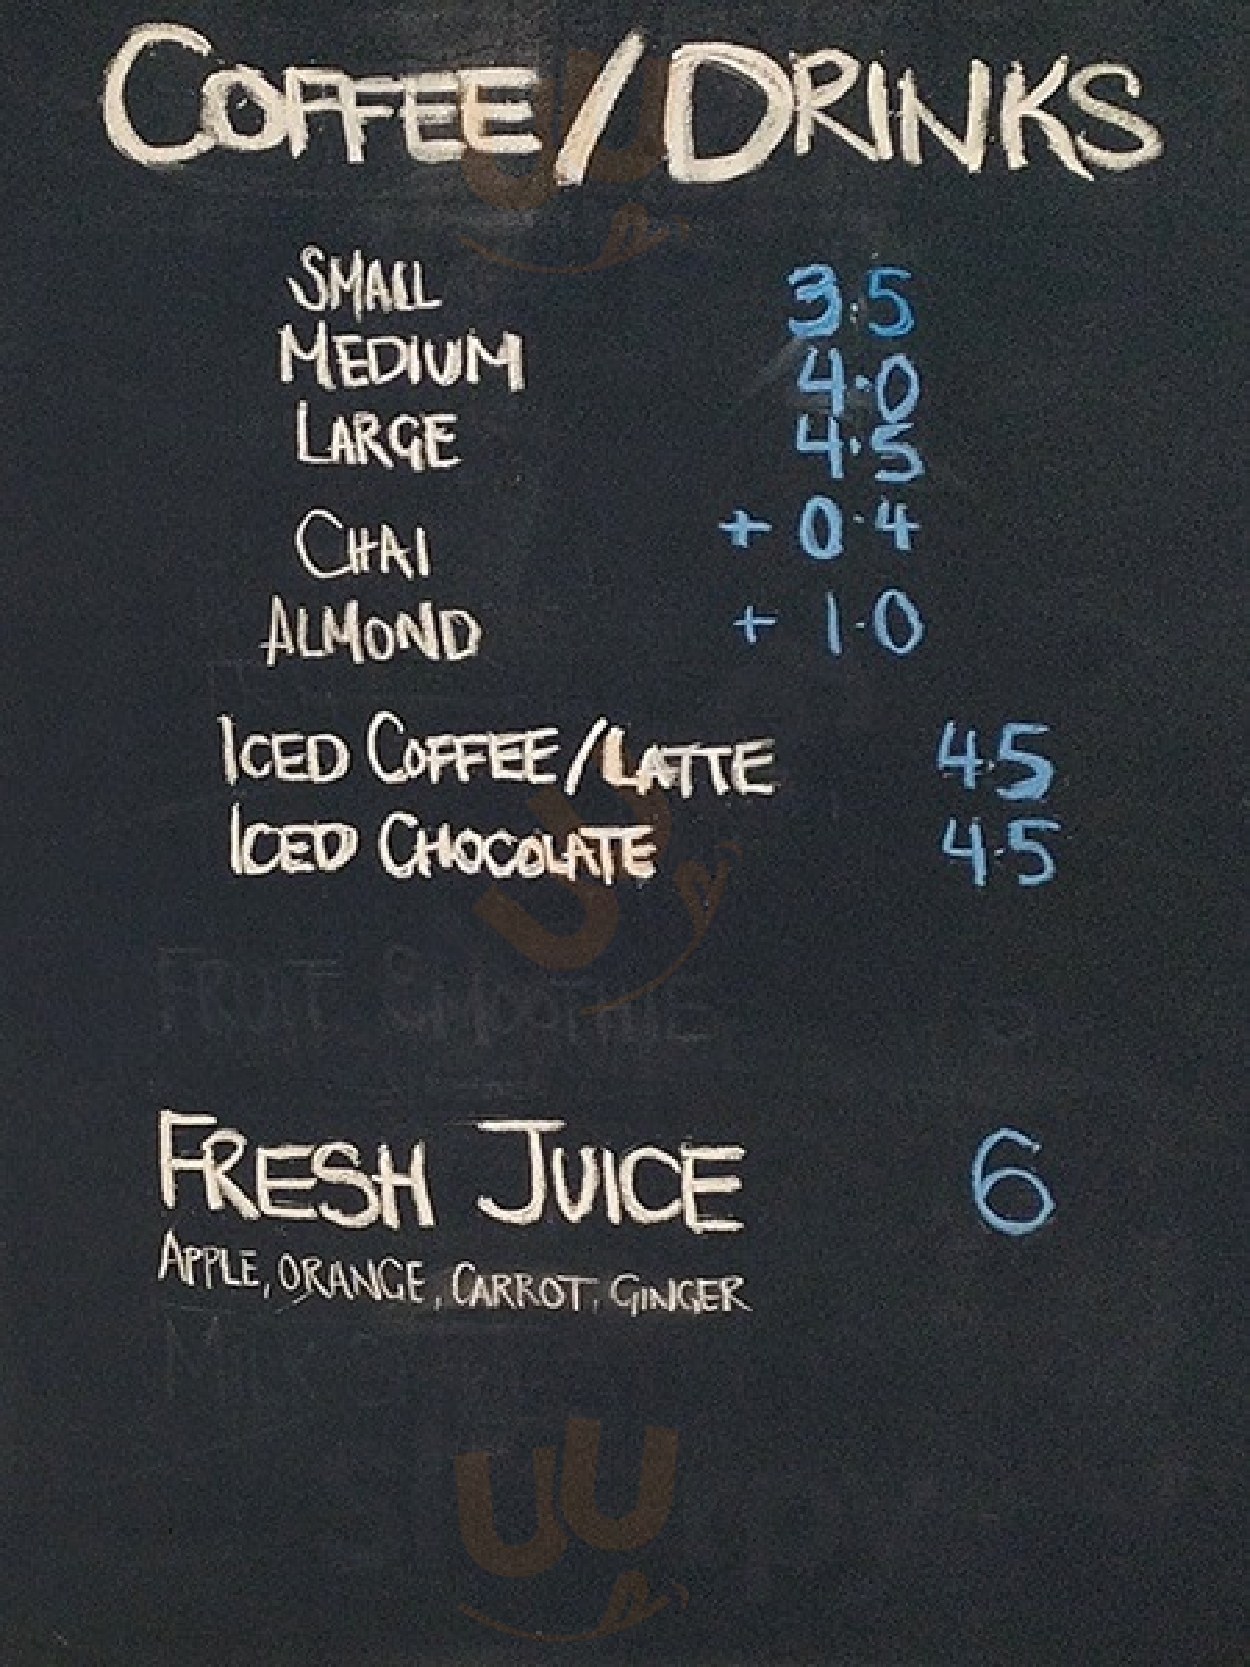 COFFEE/DRINKS
SMALL 3.5
MEDIUM 4.0
LARGE 4.5
CHAI + 0.4
ALMOND + 1.0
ICED COFFEE/LATTE 4.5
ICED CHOCOLATE 4.5
FRUIT SMOOTHIE
FRESH JUICE 6
APPLE, ORANGE, CARROT, GINGER
MILK